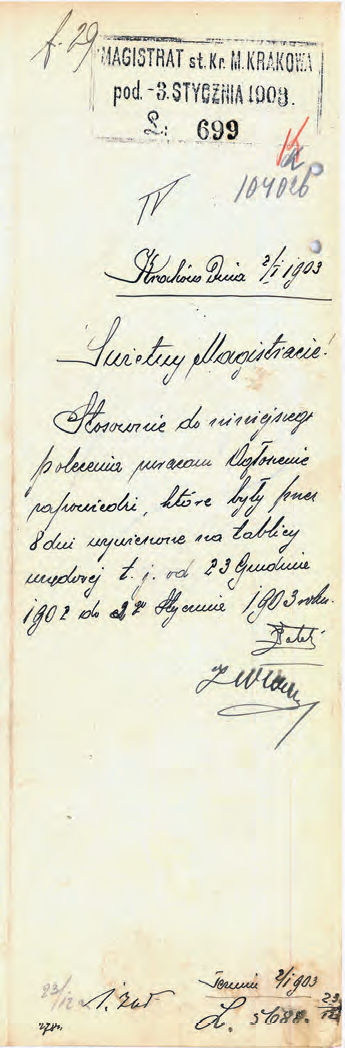 f. 29
MAGISTRAT st. Kr. M. KRAKOWA
pod. -3. STYCZNIA 1903.
L: 699
104026
IV
Kraków Dnia 2/I 1903
Świetny Magistracie!
Stosownie do niniejszego
polecenia zwracam Ogłoszenie
zapowiedzi, które były przez
8 dni wywieszone na tablicy
urzędowej t. j. od 23 Grudnia
1902 do 2go Stycznia 1903 roku.
23/12
1. Zał
Termin 2/I 903
L. 5688. 23/12